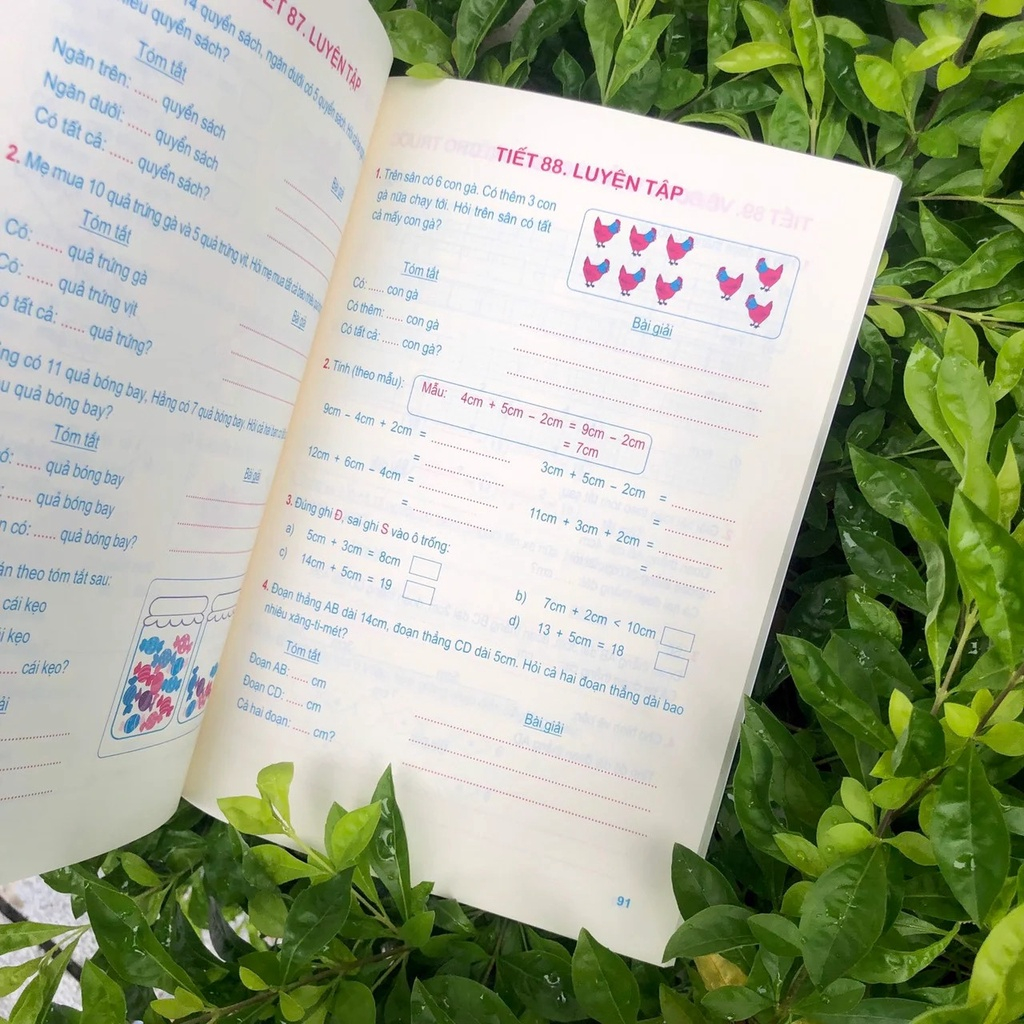 TIẾT 87. LUYỆN TẬP
14 quyển sách, ngăn dưới có 5 quyển sách. Hỏi
nhiêu quyển sách?
Tóm tắt
Ngăn trên: ...... quyển sách
Ngăn dưới: ...... quyển sách
Có tất cả: ...... quyển sách?
Bài giải
2. Mẹ mua 10 quả trứng gà và 5 quả trứng vịt. Hỏi mẹ mua tất cả bao nhiêu
Tóm tắt
Có: ...... quả trứng gà
Có: ...... quả trứng vịt
Có tất cả: ...... quả trứng?
Bài giải
có 11 quả bóng bay, Hằng có 7 quả bóng bay. Hỏi cả hai bạn có
quả bóng bay?
Tóm tắt
...... quả bóng bay
...... quả bóng bay
có: ...... quả bóng bay?
Bài giải
theo tóm tắt sau:
cái kẹo
cái kẹo
...... cái kẹo?
TIẾT 88. LUYỆN TẬP
1. Trên sân có 6 con gà. Có thêm 3 con
gà nữa chạy tới. Hỏi trên sân có tất
cả mấy con gà?
Tóm tắt
Có: ...... con gà
Có thêm: ...... con gà
Có tất cả: ...... con gà?
Bài giải
2. Tính (theo mẫu):
Mẫu: 4cm + 5cm – 2cm = 9cm – 2cm
= 7cm
9cm – 4cm + 2cm =
=
3cm + 5cm – 2cm =
=
12cm + 6cm – 4cm =
=
11cm + 3cm + 2cm =
=
3. Đúng ghi Đ, sai ghi S vào ô trống:
a) 5cm + 3cm = 8cm
b) 7cm + 2cm < 10cm
c) 14cm + 5cm = 19
d) 13 + 5cm = 18
4. Đoạn thẳng AB dài 14cm, đoạn thẳng CD dài 5cm. Hỏi cả hai đoạn thẳng dài bao
nhiêu xăng-ti-mét?
Tóm tắt
Đoạn AB: ...... cm
Đoạn CD: ...... cm
Cả hai đoạn: ...... cm?
Bài giải
91